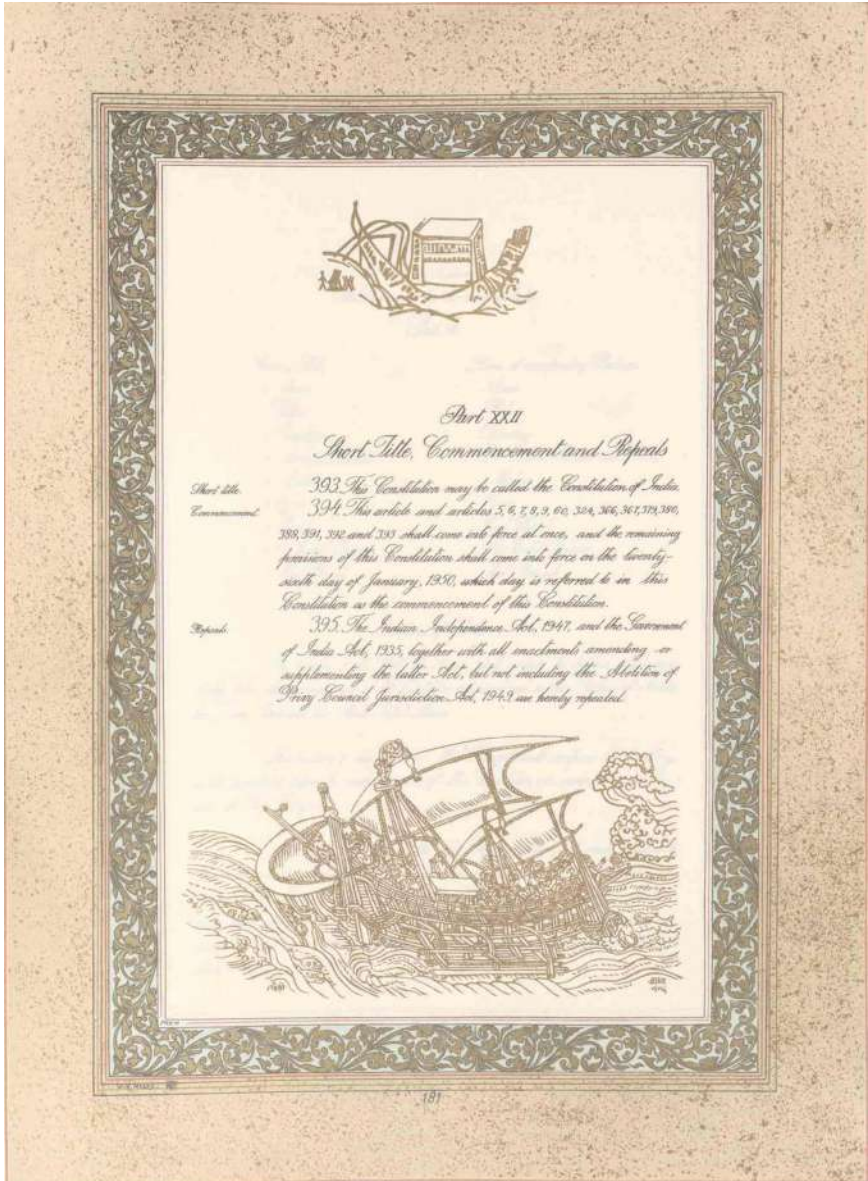 Part XXII
Short Title, Commencement and Repeals
Short title. 393. This Constitution may be called the Constitution of India.
Commencement. 394. This article and articles 5, 6, 7, 8, 9, 60, 324, 366, 367, 379, 380,
388, 391, 392 and 393 shall come into force at once, and the remaining
provisions of this Constitution shall come into force on the twenty-
sixth day of January, 1950, which day is referred to in this
Constitution as the commencement of this Constitution.
Repeals. 395. The Indian Independence Act, 1947, and the Government
of India Act, 1935, together with all enactments amending or
supplementing the latter Act, but not including the Abolition of
Privy Council Jurisdiction Act, 1949, are hereby repealed.
181